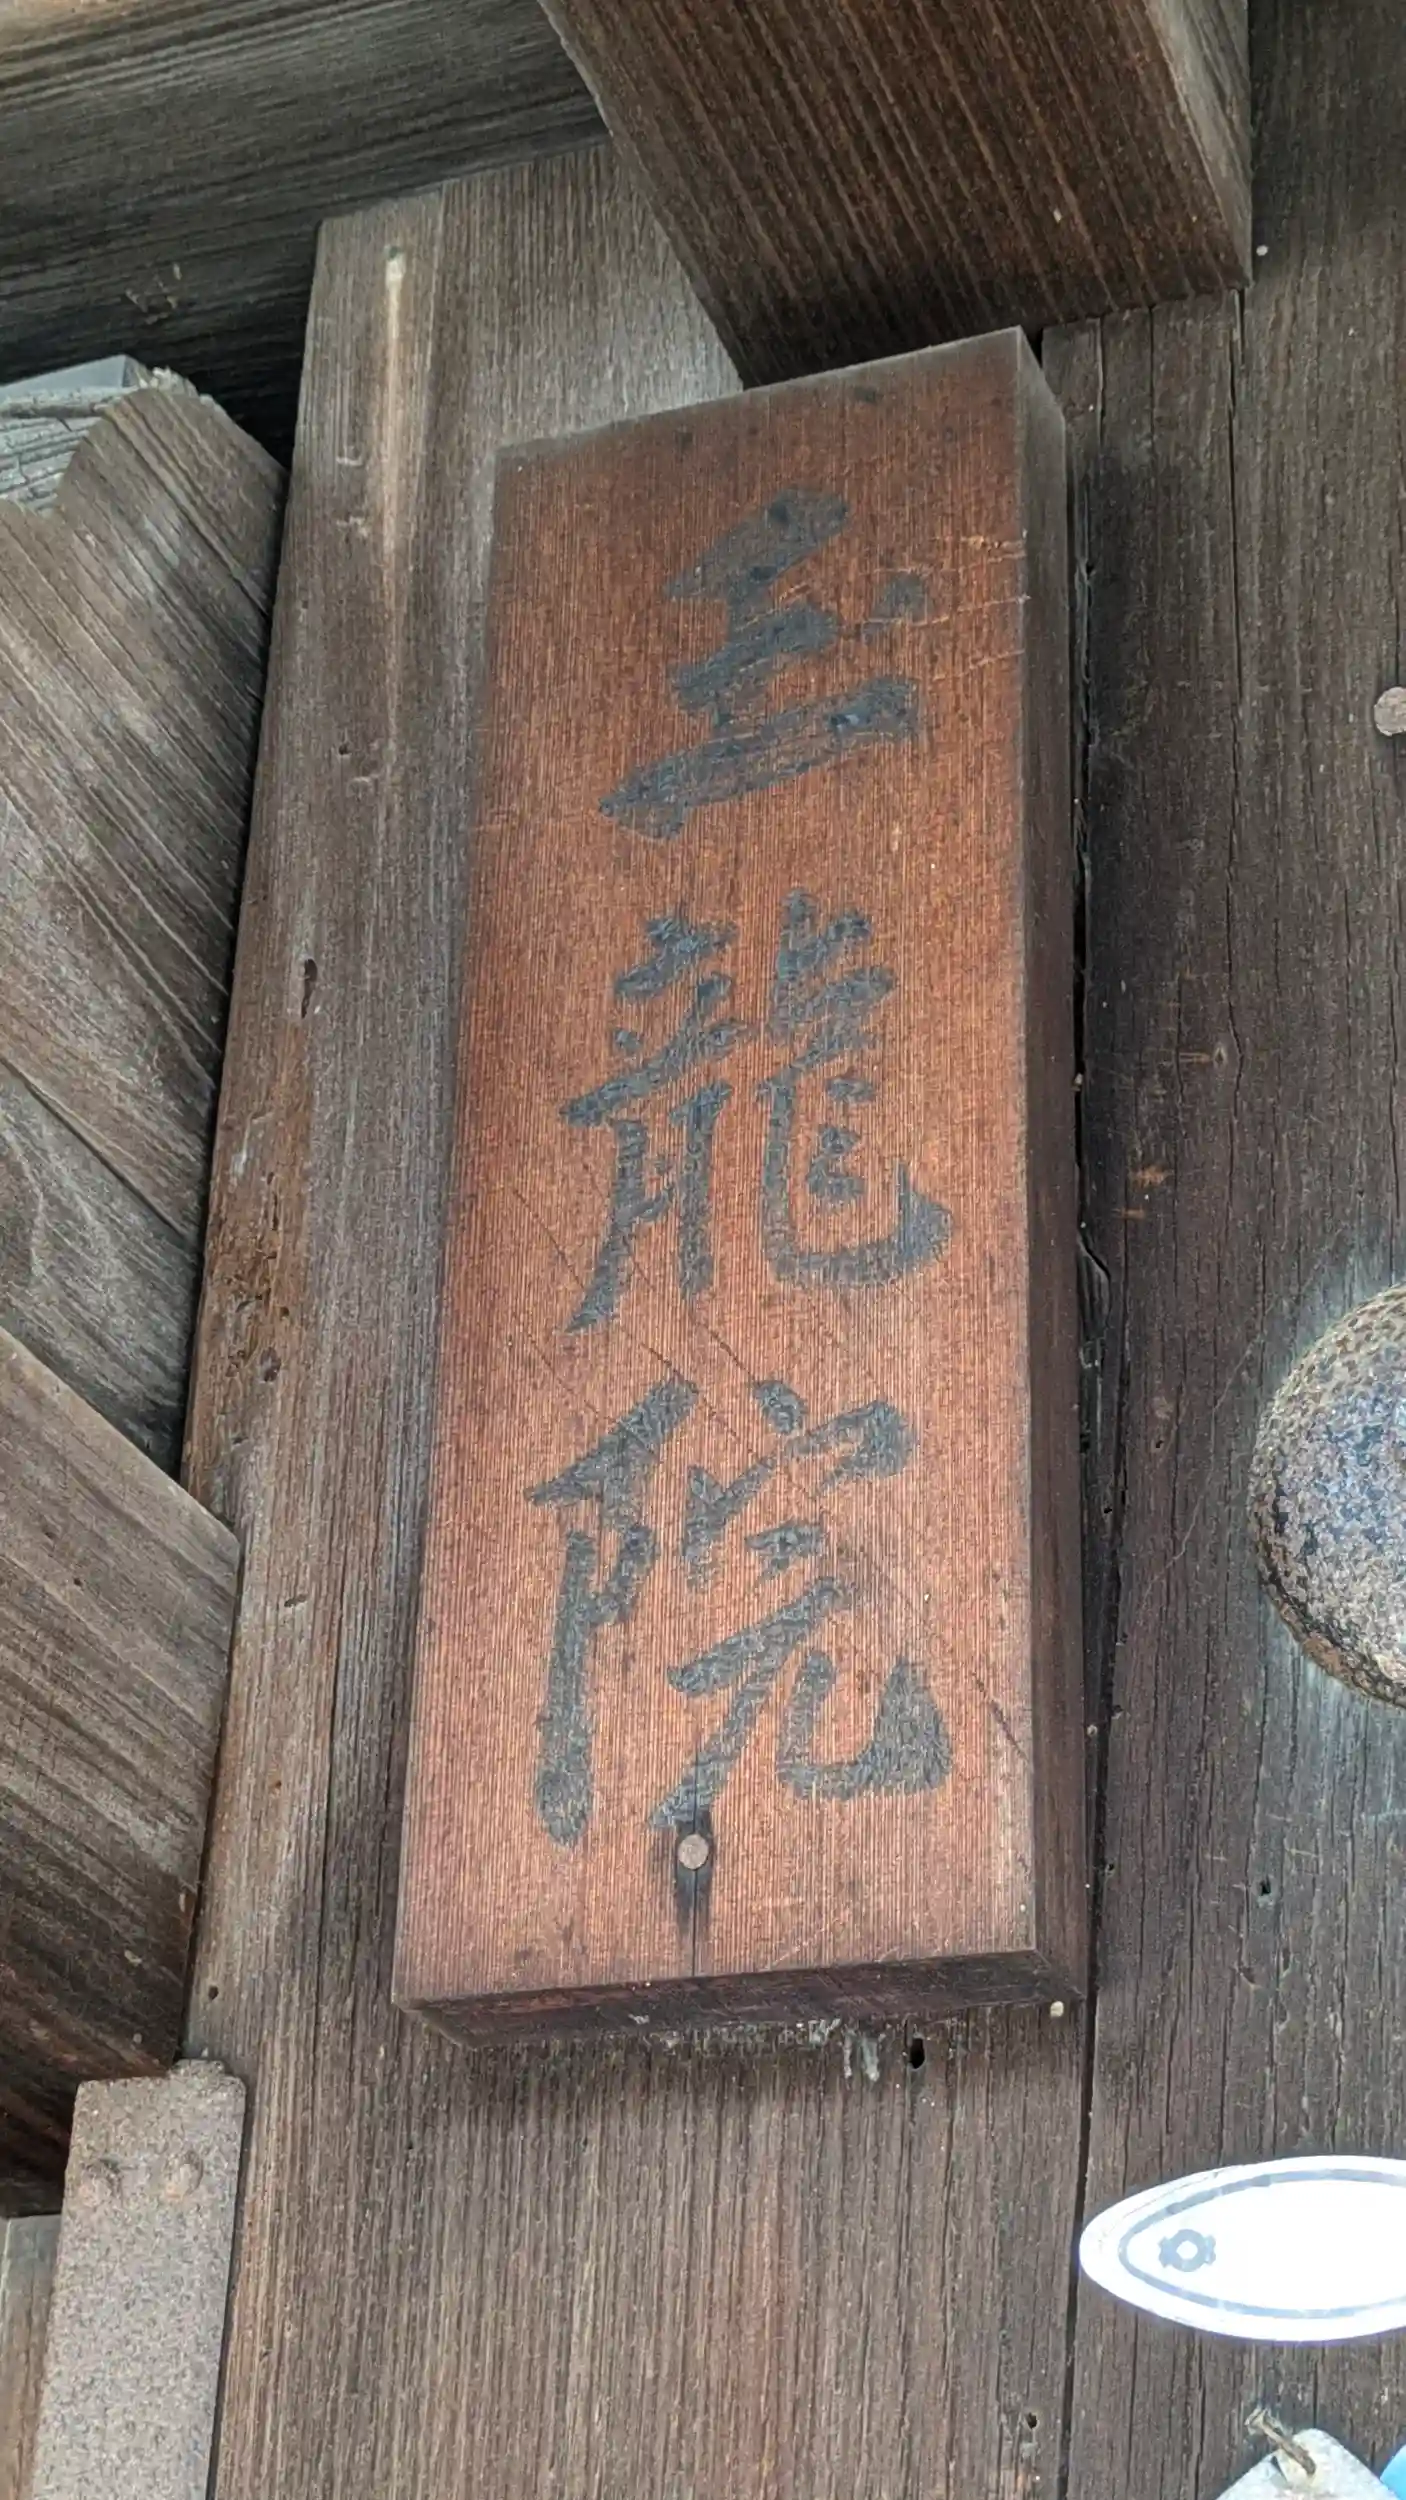 玉龍院